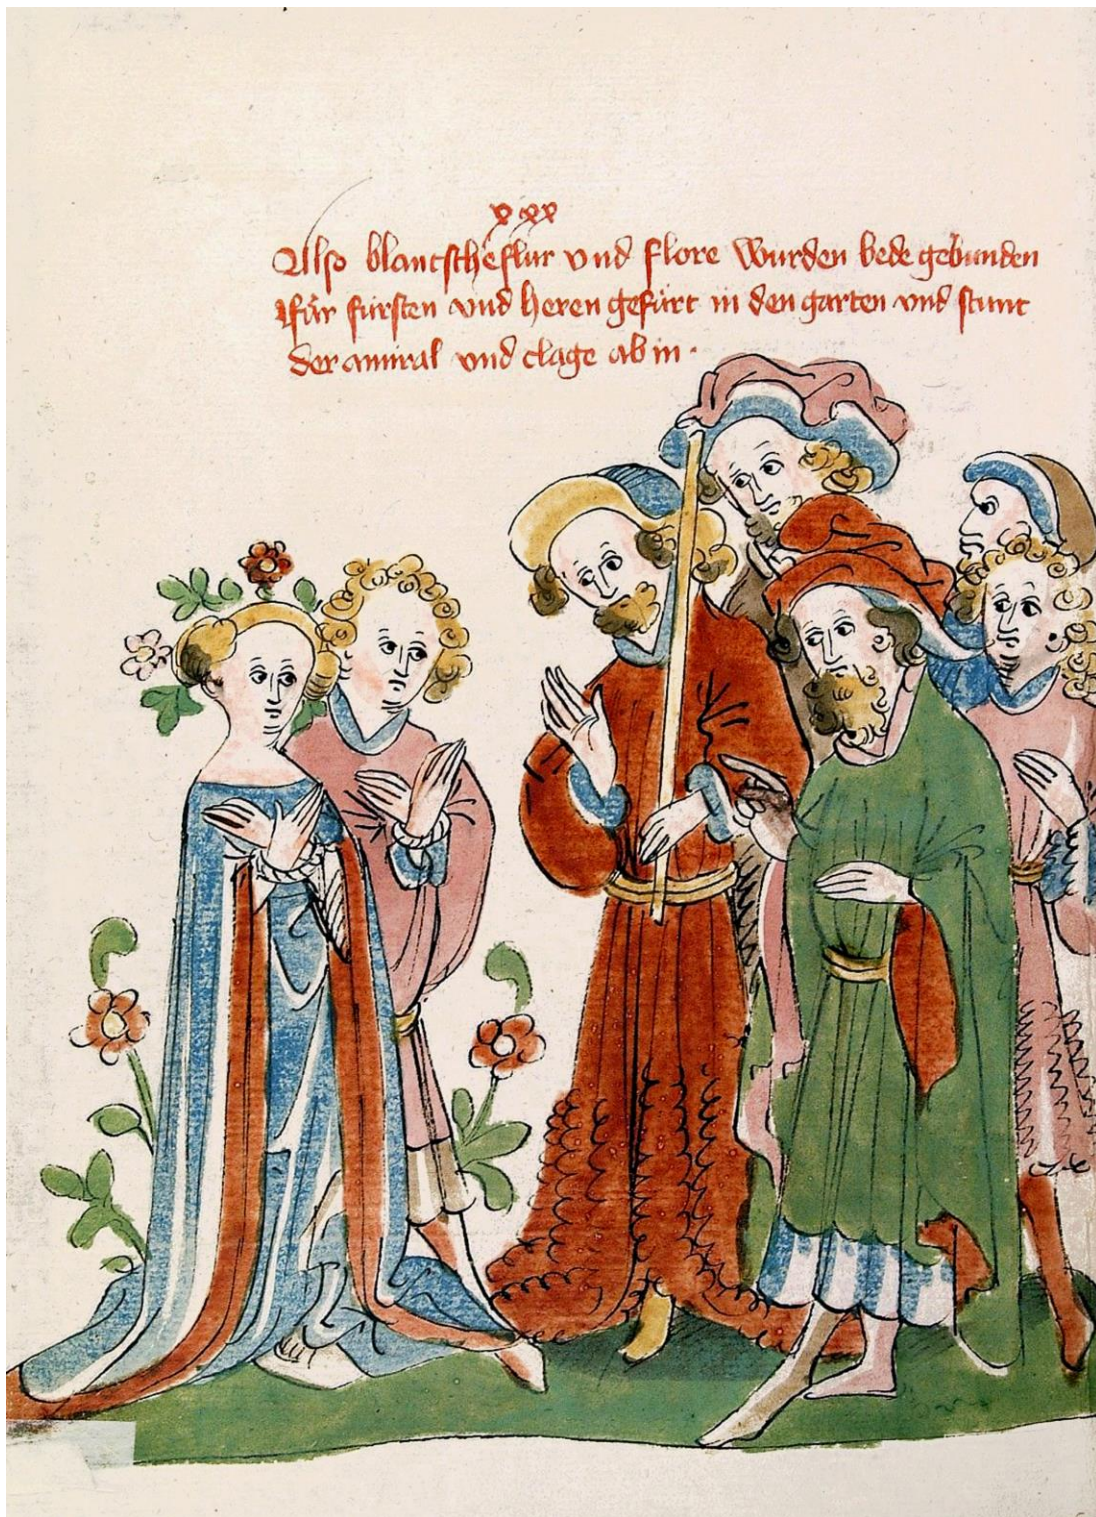 xxx
Also blantscheflur vnd flore wurden bede gebunden
für fürsten vnd heren gefürt in den garten vnd stunt
der amiral vnd clage ab in.